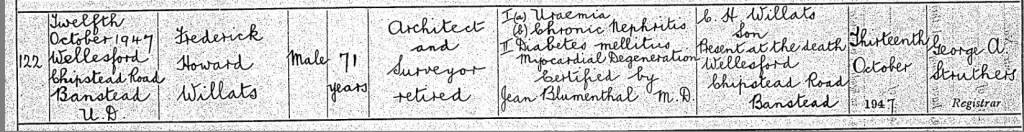 122
Twelfth
October 1947
Wellesford
Chipstead Road
Banstead
U.D.
Frederick
Howard
Willats
Male
71
years
Architect
and
Surveyor
retired
I(a) Uraemia
(b) Chronic Nephritis
II Diabetes mellitus
Myocardial Degeneration
Certified by
Jean Blumenthal M.D.
C. H. Willats
Son
Present at the death
Wellesford
Chipstead Road
Banstead
Thirteenth
October
1947
George A.
Struthers
Registrar